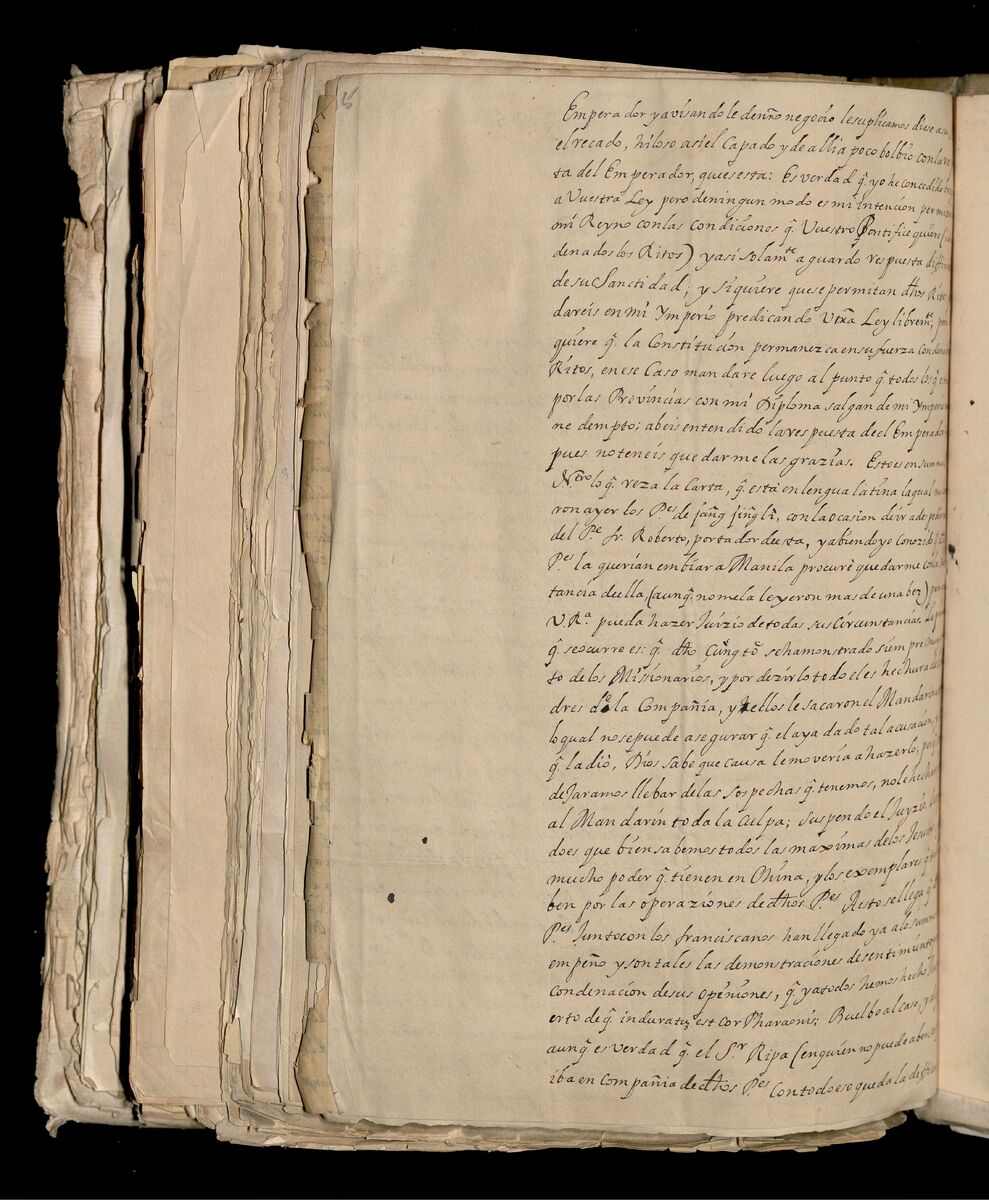 Emperador y avisandole de nr̃o negocio le suplicamos diese a su
el recado, hiloso asi el Capado y de alli a poco bolbio con la re
ta del Emperador, qui es esta: Es verdad q̃. yo he concedido
a Vuestra Ley pero de ningun modo es mi intencion permita
mi Reyno con las Condiciones q̃. Vuestro Pontifice quiere (
denados los Ritos) y asi solam.te aguardo respuesta
de su Sanctidad; y si quiere que se permitan dhos Ritos
dareis en mi Ymperio predicando Vtr̃a Ley librem.te;
quiere q̃. la Constitución permanezca en su fuerza
Ritos, en ese Caso mandare luego al punto q̃. todos los q̃.
por las Provincias con mi Diploma salgan de mi Ymperio
ne dempto; abeis entendido la respuesta de el Emperador
pues no teneis que darme las grazias. Esto es en summa
N.ero lo q̃. reza la Carta, q̃. está en lengua latina la qual
ron ayer los P.es de jang jingli, con la ocasion de ir a
del P.e fr. Roberto, portador de esta, y abiendo yo Conozido
P.es la querian embiar a Manila procuré quedarme con la
tancia de ella, (aunq̃. no me la leyeron mas de una bez)
V. R.a pueda hazer Juizio de todas sus Circunstancias.
q̃. se ocurre es: q̃. dho Cung to se ha monstrado siempre
to de los Missionarios, y por dezirlo todo el es hechura
dres de la Compañia, y ellos le sacaron el Mandarinato
lo qual no se puede asegurar q̃. el aya dado tal acusacion,
q̃. la dió, Dios sabe que causa le moveria a hazerlo;
dejaramos llebar de las sospechas q̃. tenemos, no le
al Mandarin toda la Culpa; suspendo el Juyzio,
do es que bien sabemos todos las maximas de los Jesuitas
mucho poder q̃. tienen en China, y los exemplares q̃.
ben por las operaziones de dhos P.es A esto se llega q̃.
P.es Junto con los franciscanos han llegado ya a lo summo
empeño y son tales las demonstraciones de sentimiento
condenacion de sus Openiones, q̃. ya todos hemos hecho
erto de q̃. induratum est cor Pharaonis; Buelbo al Caso, y
aunq̃. es verdad q̃. el S.r Ripa (en quien no puede aber
iba en Compañia de dhos P.es Con todo eso queda la